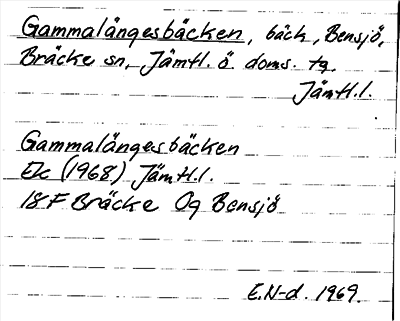 Gammalängesbäcken, bäck, Bensjö,
Bräcke sn, Jämtl. ö. doms. tg.
Jämtl.l.
Gammalängesbäcken
Ek (1968) Jämtl.l.
18F Bräcke Og Bensjö
E.N-d. 1969.